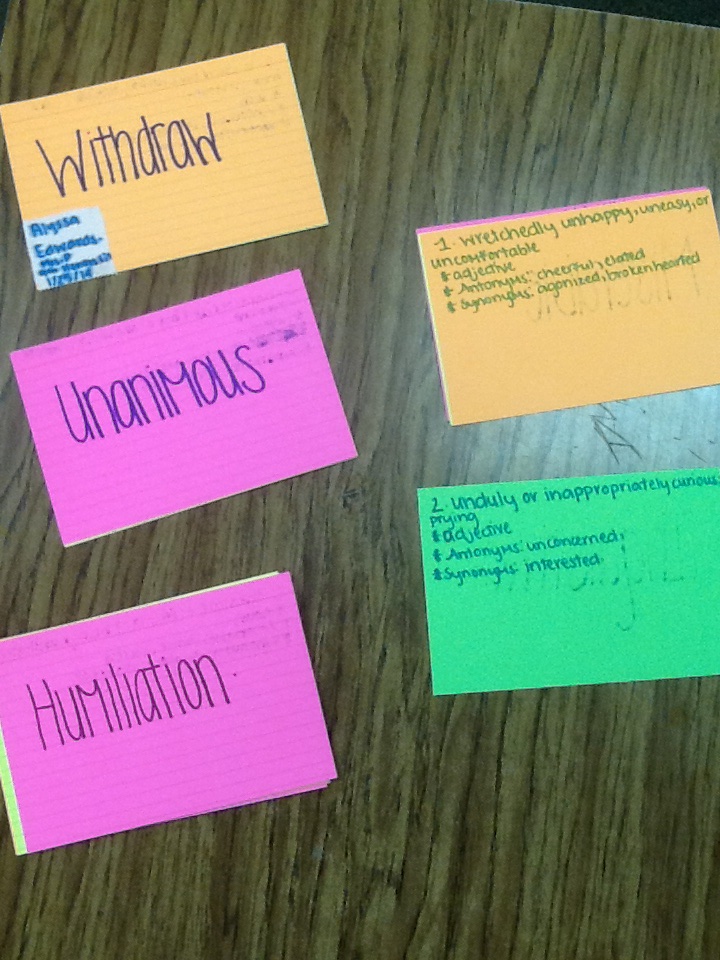 Withdraw
Alyssa
Edwards
1/29/14
Unanimous
Humiliation
1. wretchedly unhappy, uneasy, or
uncomfortable
* adjective
* Antonyms: cheerful, elated
* Synonyms: agonized, brokenhearted
2. unduly or inappropriately curious;
prying
* adjective
* Antonyms: unconcerned
* Synonyms: interested